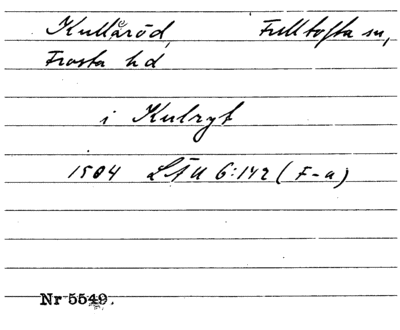 Kullaröd, Fulltofta sn,
Frosta hd
i Kulryt
1504 LÄU 6:142 (F-a)
Nr 5549.